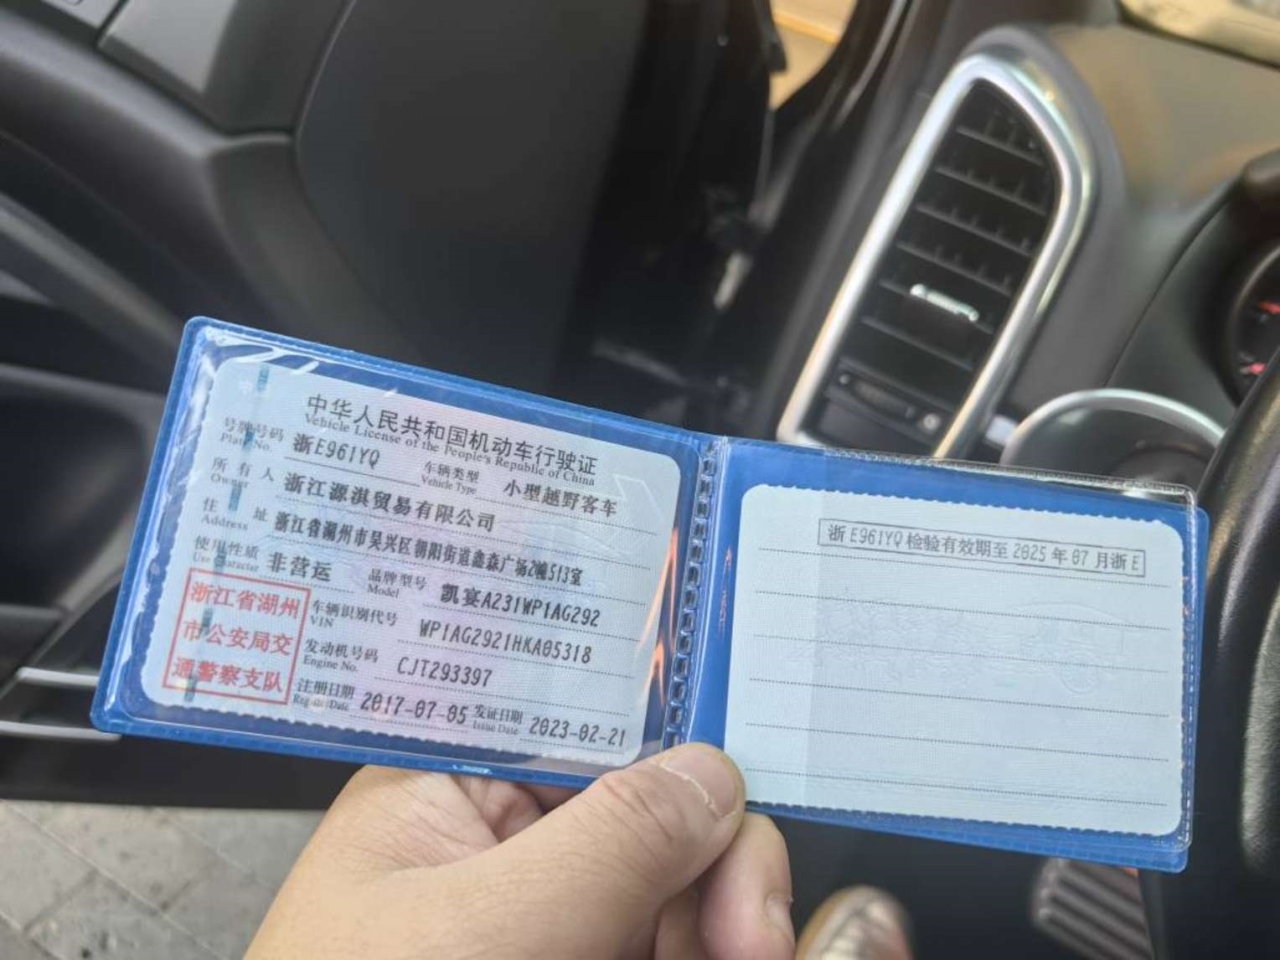 中华人民共和国机动车行驶证
Vehicle License of the People's Republic of China
号牌号码 浙E961YQ 车辆类型 小型越野客车
Plate No. Vehicle Type
所有人 浙江源淇贸易有限公司
Owner
住址 浙江省湖州市吴兴区朝阳街道鑫森广场2幢513室
Address
使用性质 非营运 品牌型号 凯宴A231WP1AG292
Use Character Model
浙江省湖州
市公安局交
通警察支队
车辆识别代号 WP1AG2921HKA05318
VIN
发动机号码 CJT293397
Engine No.
注册日期 2017-07-05 发证日期 2023-02-21
Register Date Issue Date
浙E961YQ检验有效期至2025年07月浙E